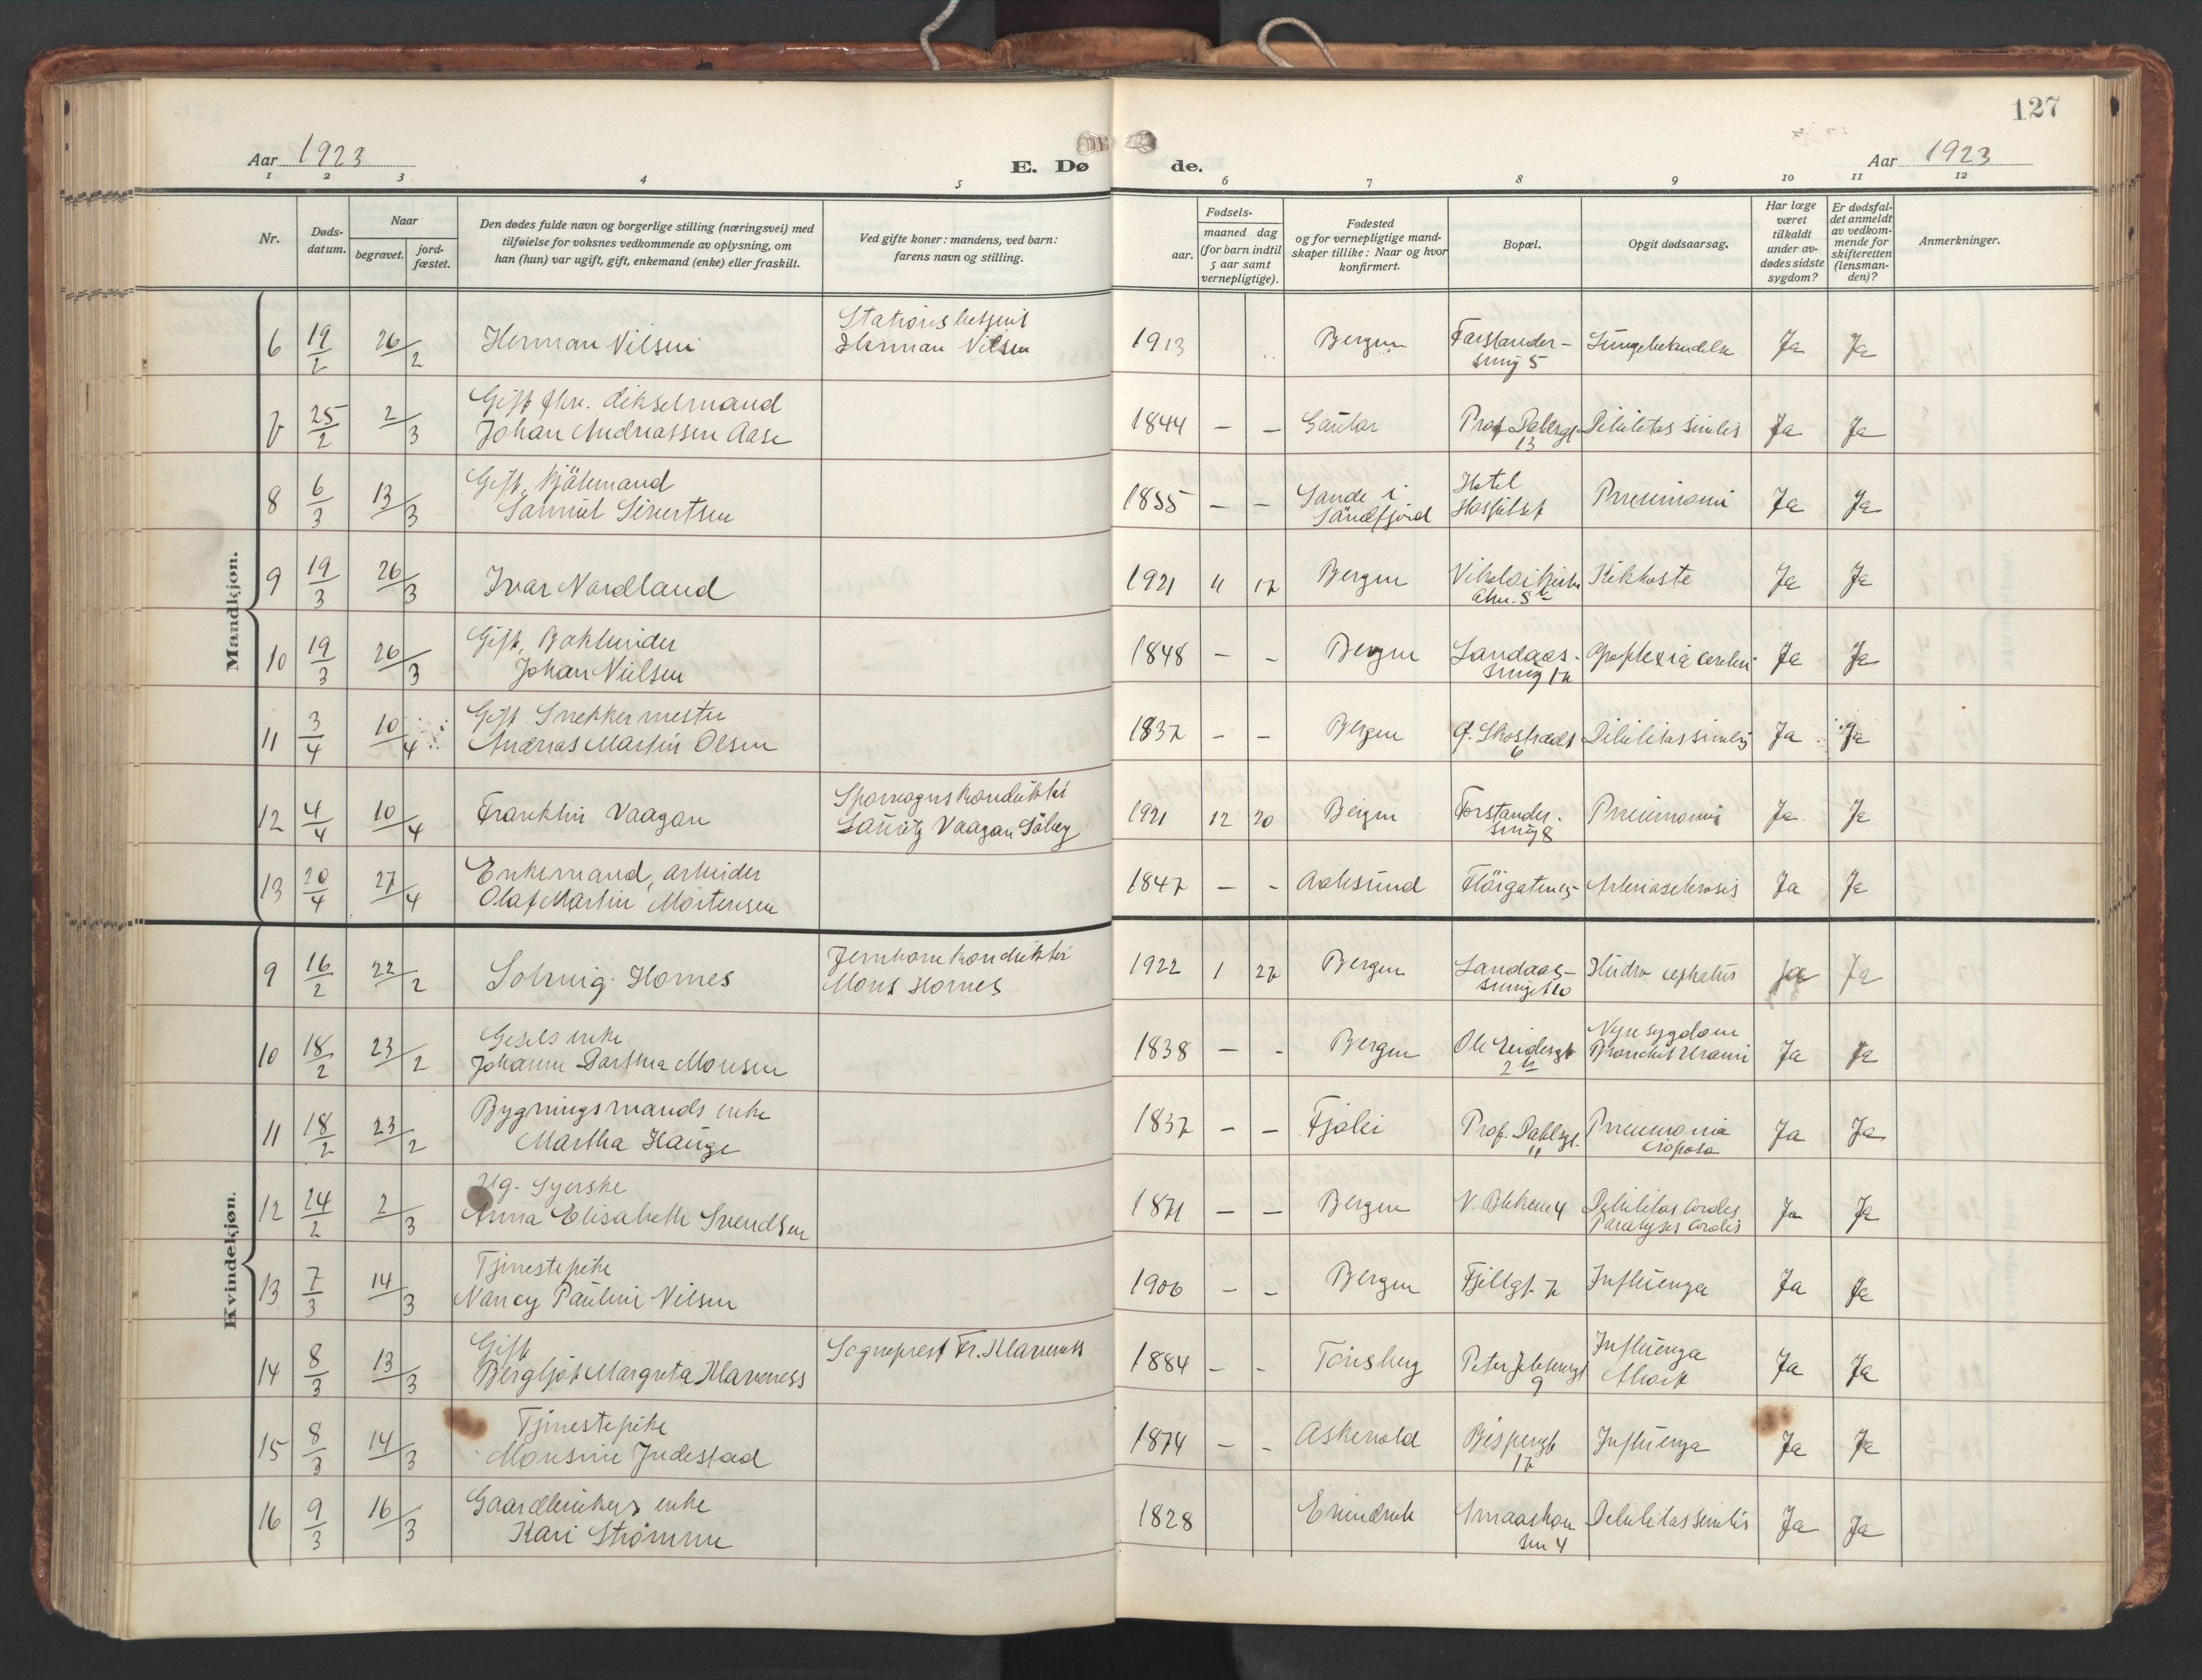 127
Aar 1923
E. Dø
de.
Aar 1923
1 2 3 4 5 6 7 8 9 10 11 12
Nr.
Døds-
datum.
Naar
begravet.
jord-
fæstet.
Den dødes fulde navn og borgerlige stilling (næringsvei) med
tilføielse for voksnes vedkommende av oplysning, om
han (hun) var ugift, gift, enkemand (enke) eller fraskilt.
Ved gifte koner: mandens, ved barn:
farens navn og stilling.
Fødsels-
aar.
maaned dag
(for barn indtil
5 aar samt
vernepligtige).
Fødested
og for vernepligtige mand-
skaper tillike: Naar og hvor
konfirmert.
Bopæl.
Opgit dødsaarsag.
Har læge
været
tilkaldt
under av-
dødes sidste
sygdom?
Er dødsfal-
det anmeldt
av vedkom-
mende for
skifteretten
(lensman-
den)?
Anmerkninger.
Mandkjøn.
6 19/2 26/2 Herman Nilsen
Stationsbetjent
Herman Nilsen
1913 Bergen
Forstander-
smug 5
Ja Ja
7 25/2 2/3 Gift
Johan Andreassen Aase
1844 - - Gaular
Prof. Dahlsgt
13
Debilitas senilis Ja Ja
8 6/3 13/3 Gift,
Samuel Sivertsen
1855 - - Sande i
Söndfjord
Hotel
Hospitset
Pneumoni Ja Ja
9 19/3 26/3 Ivar Nordland
1921 4 17 Bergen
Nikolaikirke
alm. 5
Kikhoste Ja Ja
10 19/3 26/3 Gift, Bokbinder
Johan Nielsen
1848 - - Bergen
Landaas-
smug 17
Apoplexia cerebri Ja Ja
11 3/4 10/4 Gift Snekkermester
Andreas Martin Olsen
1837 - - Bergen
6
Debilitas senilis Ja Ja
12 4/4 10/4 Franklin Vaagan
Sporvognskonduktör
Lauritz Vaagan Söberg
1921 12 20 Bergen
Forstander-
smug 8
Pneumoni Ja Ja
13 20/4 27/4 Enkemand, arbeider
Olaf Martin Mortensen
1847 - - Aalesund
Arteriosclerosis Ja Ja
Kvindekjøn.
9 16/2 22/2 Solveig Hornes
Jernbanekonduktör
Mons Hornes
1922 1 27 Bergen
Landaas-
smuget 10
Hydro cephalus Ja Ja
10 18/2 23/2 Gesels enke
Johanne Dorthea Monsen
1838 - - Bergen
Nyresygdom
Ja Ja
11 18/2 23/2 Bygningsmands enke
Martha Hauge
1837 - - Fjaler
Prof. Dahlsgt.
11
Pneumonia
croposa
Ja Ja
12 24/2 2/3 Ug. Syerske
Anna Elisabeth Svendsen
1871 - - Bergen
Debilitas cordis
Paralysis cordis
Ja Ja
13 7/3 14/3 Tjenestepike
Nancy Pauline Nilsen
1906 - - Bergen Fjellgt. 7 Influenza Ja Ja
14 8/3 13/3 Gift
Bergljot Margreta Klaveness
Sogneprest Fr. Klaveness
1884 - - Tönsberg
Peter Jebsensgt
9
Influenza
Abort
Ja Ja
15 8/3 14/3 Tjenestepike
Monsine Indestad
1874 - - Askevold
Bispengt
17
Influenza Ja Ja
16 9/3 16/3 Gaardbrukers enke
Kari Strömme
1828 Evindvik
4
Debilitas senilis Ja Ja